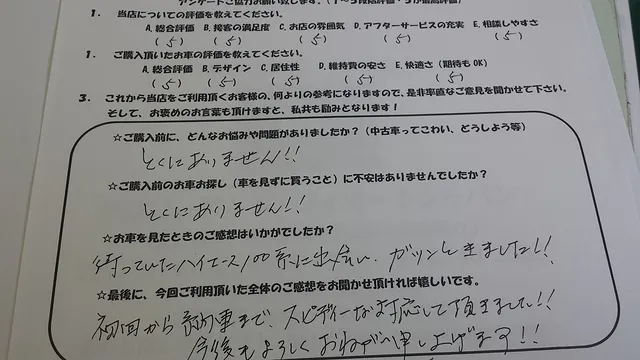 アンケートご協力お願い致します。(1~5段階評価・5が最高評価)
1. 当店についての評価を教えてください。
A. 総合評価 B. 接客の満足度 C. お店の雰囲気 D. アフターサービスの充実 E. 相談しやすさ
(5) (5) (5) (5) (5)
1. ご購入頂いたお車の評価を教えてください。
A. 総合評価 B. デザイン C. 居住性 D. 維持費の安さ E. 快適さ(期待もOK)
(5) (5) (5) (5) (5)
3. これから当店をご利用頂くお客様の、何よりの参考になりますので、是非率直なご意見を聞かせて下さい。
そして、お褒めのお言葉も頂けますと、私共も励みとなります!
☆ご購入前に、どんなお悩みや問題がありましたか?(中古車ってこわい、どうしよう等)
とくにありません!!
☆ご購入前のお車お探し(車を見ずに買うこと)に不安はありませんでしたか?
とくにありません!!
☆お車を見たときのご感想はいかがでしたか?
待っていたハイエース100系に出会い、ガツンときました!!
☆最後に、今回ご利用頂いた全体のご感想をお聞かせ頂ければ嬉しいです。
初回から納車まで、スピディーなな対応して頂きました!!
今後もよろしくおねがい申し上げます!!